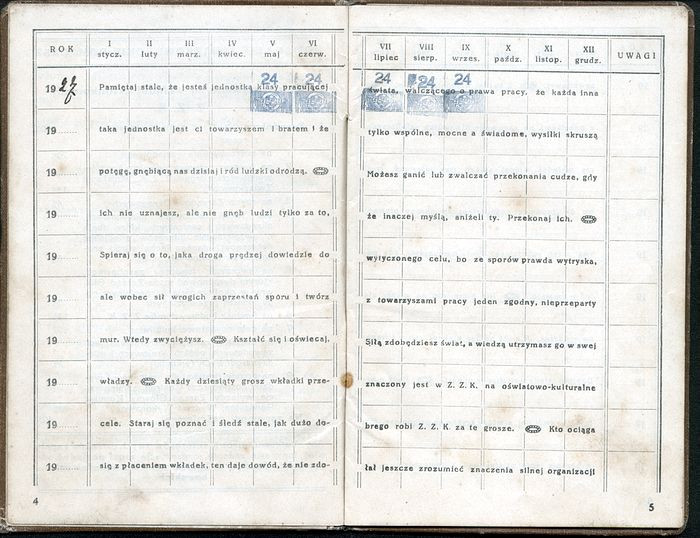 ROK I II III IV V VI
stycz. luty marz. kwiec. maj czerw.
VII VIII IX X XI XII UWAGI
lipiec sierp. wrzes. paźdz. listop. grudz.
24 24 24 24 24
19 27 Pamiętaj stale, że jesteś jednostką klasy pracującej świata, walczącego o prawa pracy, że każda inna
19 taka jednostka jest ci towarzyszem i bratem i że tylko wspólne, mocne a świadome, wysiłki skruszą
19 potęgę, gnębiącą nas dzisiaj i ród ludzki odrodzą. Możesz ganić lub zwalczać przekonania cudze, gdy
19 ich nie uznajesz, ale nie gnęb ludzi tylko za to, że inaczej myślą, aniżeli ty. Przekonaj ich.
19 Spieraj się o to, jaka droga prędzej dowiedzie do wytyczonego celu, bo ze sporów prawda wytryska,
19 ale wobec sił wrogich zaprzestań sporu i twórz z towarzyszami pracy jeden zgodny, nieprzeparty
19 mur. Wtedy zwyciężysz. Kształć się i oświecaj. Siłą zdobędziesz świat, a wiedzą utrzymasz go w swej
19 władzy. Każdy dziesiąty grosz wkładki prze- znaczony jest w Z. Z. K. na oświatowo-kulturalne
19 cele. Staraj się poznać i śledź stale, jak dużo do- brego robi Z. Z. K. za te grosze. Kto ociąga
19 się z płaceniem wkładek, ten daje dowód, że nie zdo- łał jeszcze zrozumieć znaczenia silnej organizacji
4 5